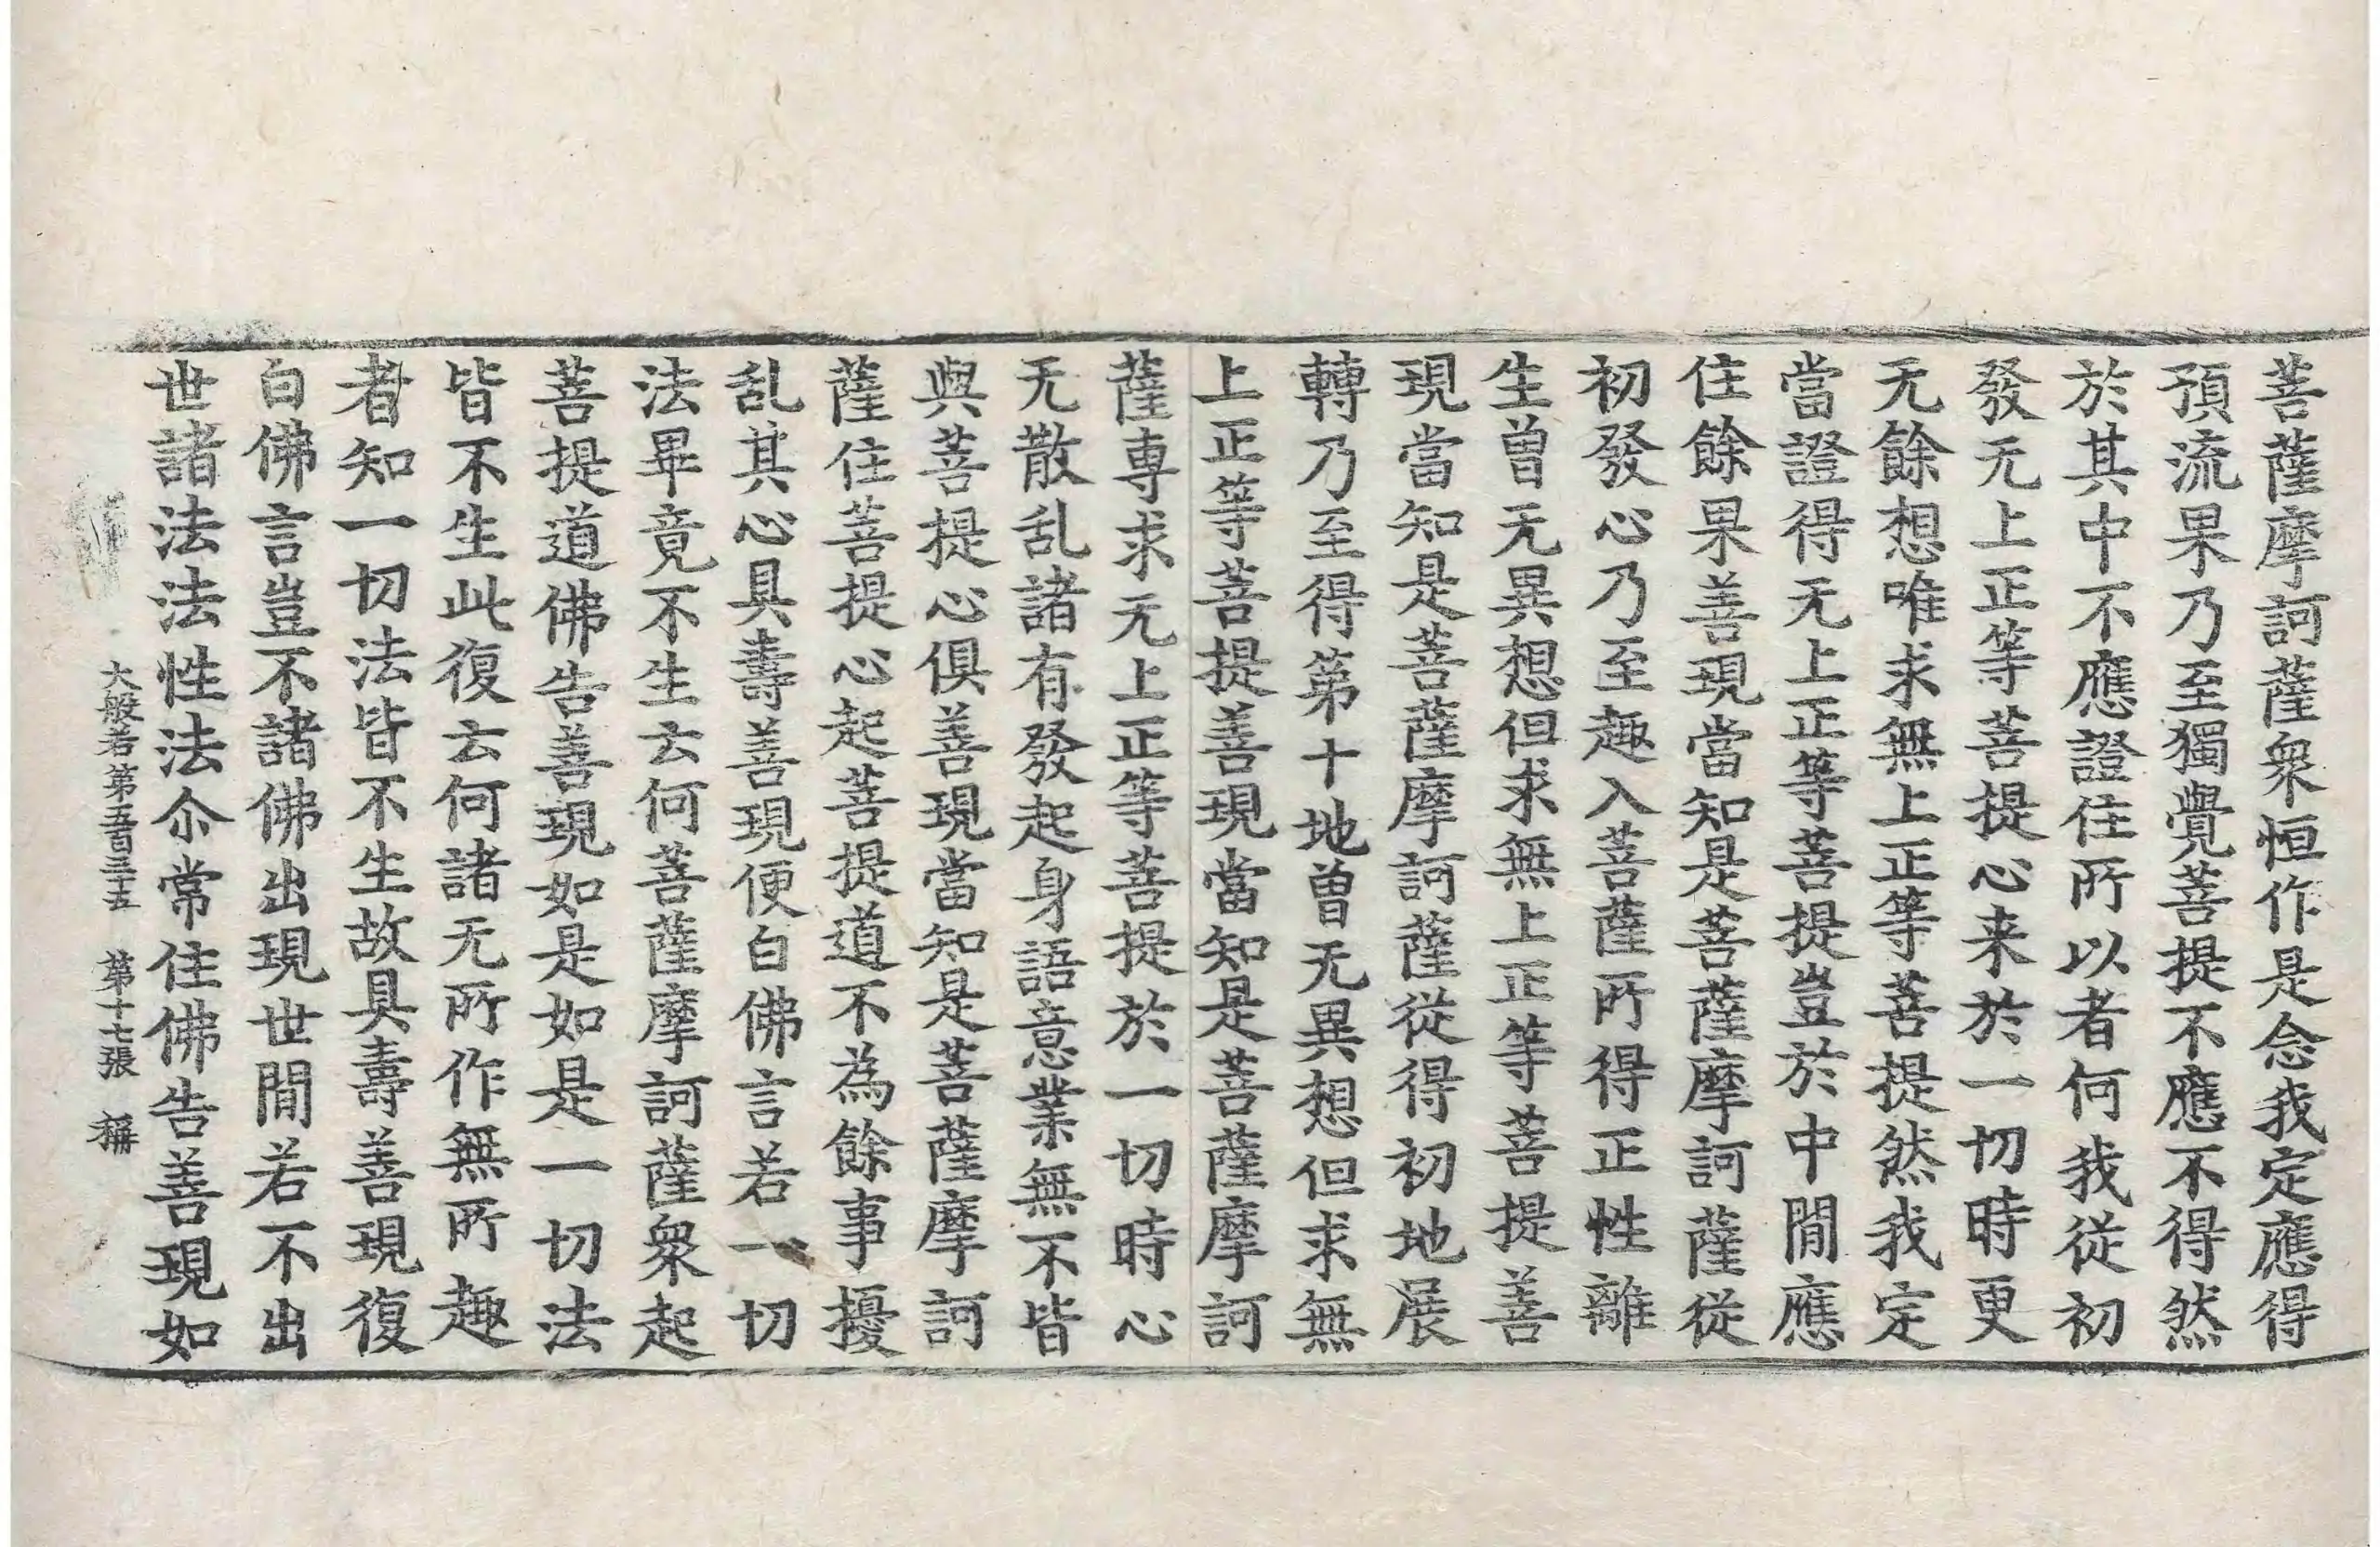 菩薩摩訶薩衆恒作是念我定應得
預流果乃至獨覺菩提不應不得然
於其中不應證住所以者何我從初
發无上正等菩提心来於一切時更
无餘想唯求無上正等菩提然我定
當證得无上正等菩提豈於中間應
住餘果善現當知是菩薩摩訶薩從
初發心乃至趣入菩薩所得正性離
生曽无異想但求無上正等菩提善
現當知是菩薩摩訶薩從得初地展
轉乃至得第十地曽无異想但求無
上正等菩提善現當知是菩薩摩訶
薩専求无上正等菩提於一切時心
无散乱諸有發起身語意業無不皆
與菩提心俱善現當知是菩薩摩訶
薩住菩提心起菩提道不為餘事擾
乱其心具壽善現便白佛言若一切
法畢竟不生云何菩薩摩訶薩衆起
菩提道佛告善現如是如是一切法
皆不生此復云何諸无所作無所趣
者知一切法皆不生故具壽善現復
白佛言豈不諸佛出現世間若不出
世諸法法性法尒常住佛告善現如
大般若第五百三十五　第十七張　稱